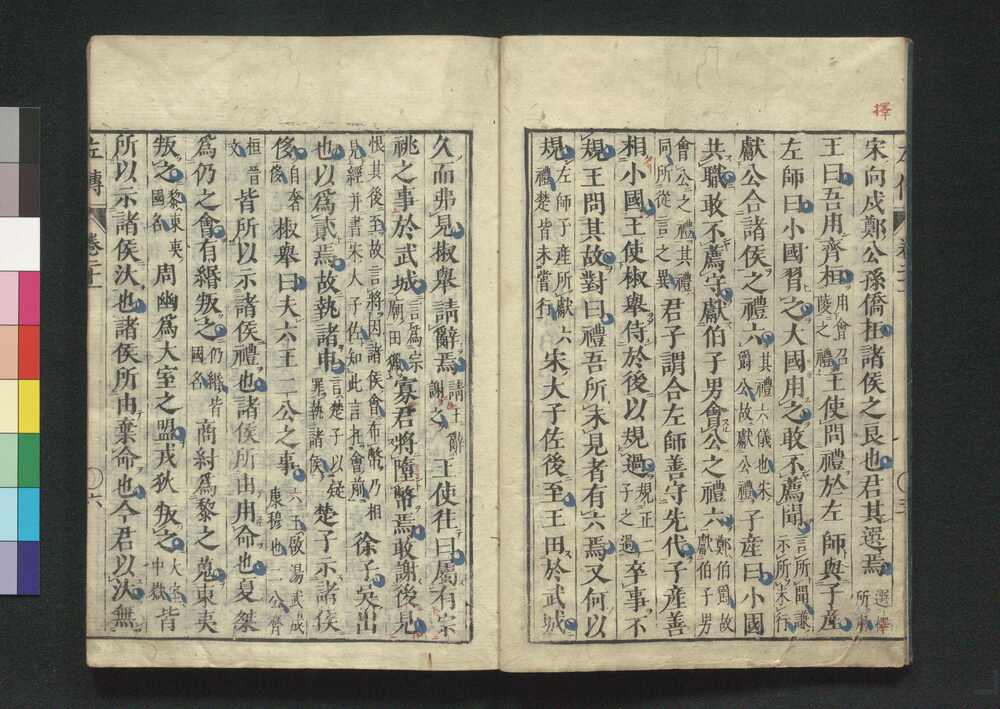 擇
宋向戌鄭公孫僑在諸侯之良也君其選焉選擇所用
王曰吾用齊桓用會召陵之禮王使問禮於左師與子產
左師曰小國習之大國用之敢不薦聞言所聞謙示所未行
獻公合諸侯之禮六其禮六儀也宋爵公故獻公禮子產曰小國
共職敢不薦守獻伯子男會公之禮六鄭伯爵故獻伯子男
會公之禮其禮同所從言之異君子謂合左師善守先代子產善
相小國王使椒舉侍於後以規過規正二子之過卒事不
規王問其故對曰禮吾所未見者有六焉又何以
規左師子產所獻六禮楚皆未嘗行宋大子佐後至王田於武城
久而弗見椒舉請辭焉請王辭謝之王使往曰屬有宗
祧之事於武城言為宗廟田獵寡君將墮幣焉敢謝後見
恨其後至故言將因諸侯會布幣乃相見經并書宋大子佐知此言在會前徐子吳出
也以為貳焉故執諸申言楚子以疑罪執諸侯楚子示諸侯
侈自奢侈椒舉曰夫六王二公之事六王啟湯武成康穆也二公齊
桓晉文皆所以示諸侯禮也諸侯所由用命也夏桀
為仍之會有緡叛之仍緡皆國名商紂為黎之蒐東夷
叛之黎東夷國名周幽為大室之盟戎狄叛之大室中嶽皆
所以示諸侯汏也諸侯所由棄命也今君以汏無
左傳 卷二十一 六